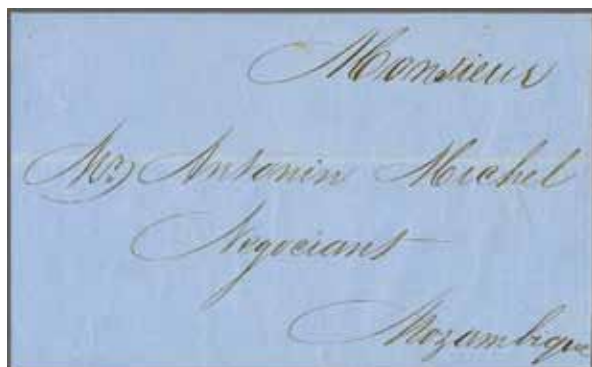 Monsieur
Mr Antonin Michel
Negociant
Mozambique